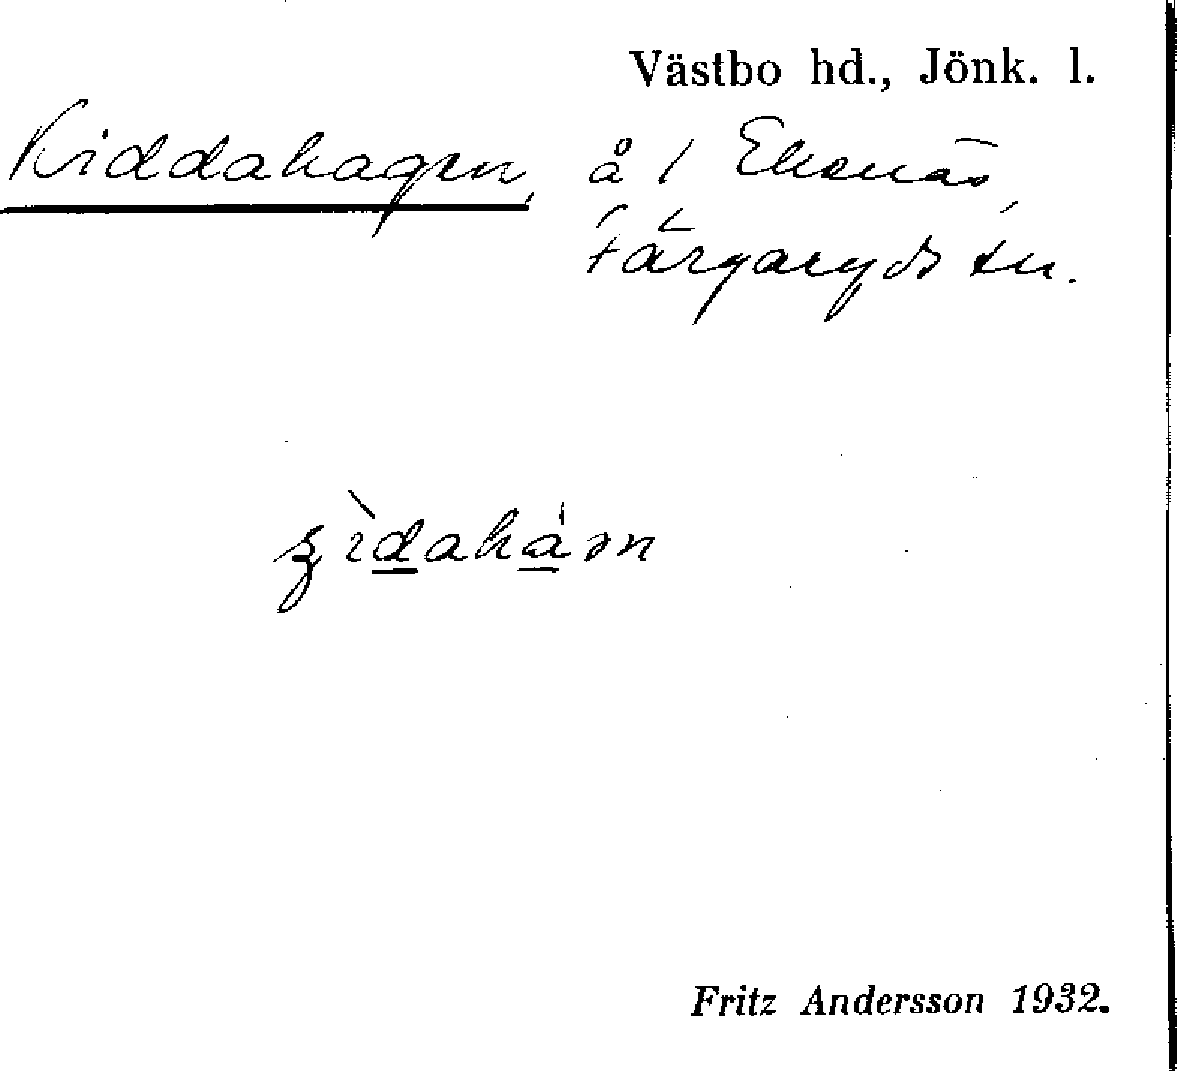 Västbo hd., Jönk. l.
Kiddahagen, å / Ekenäs,
Färgaryds sn.
Fritz Andersson 1932.